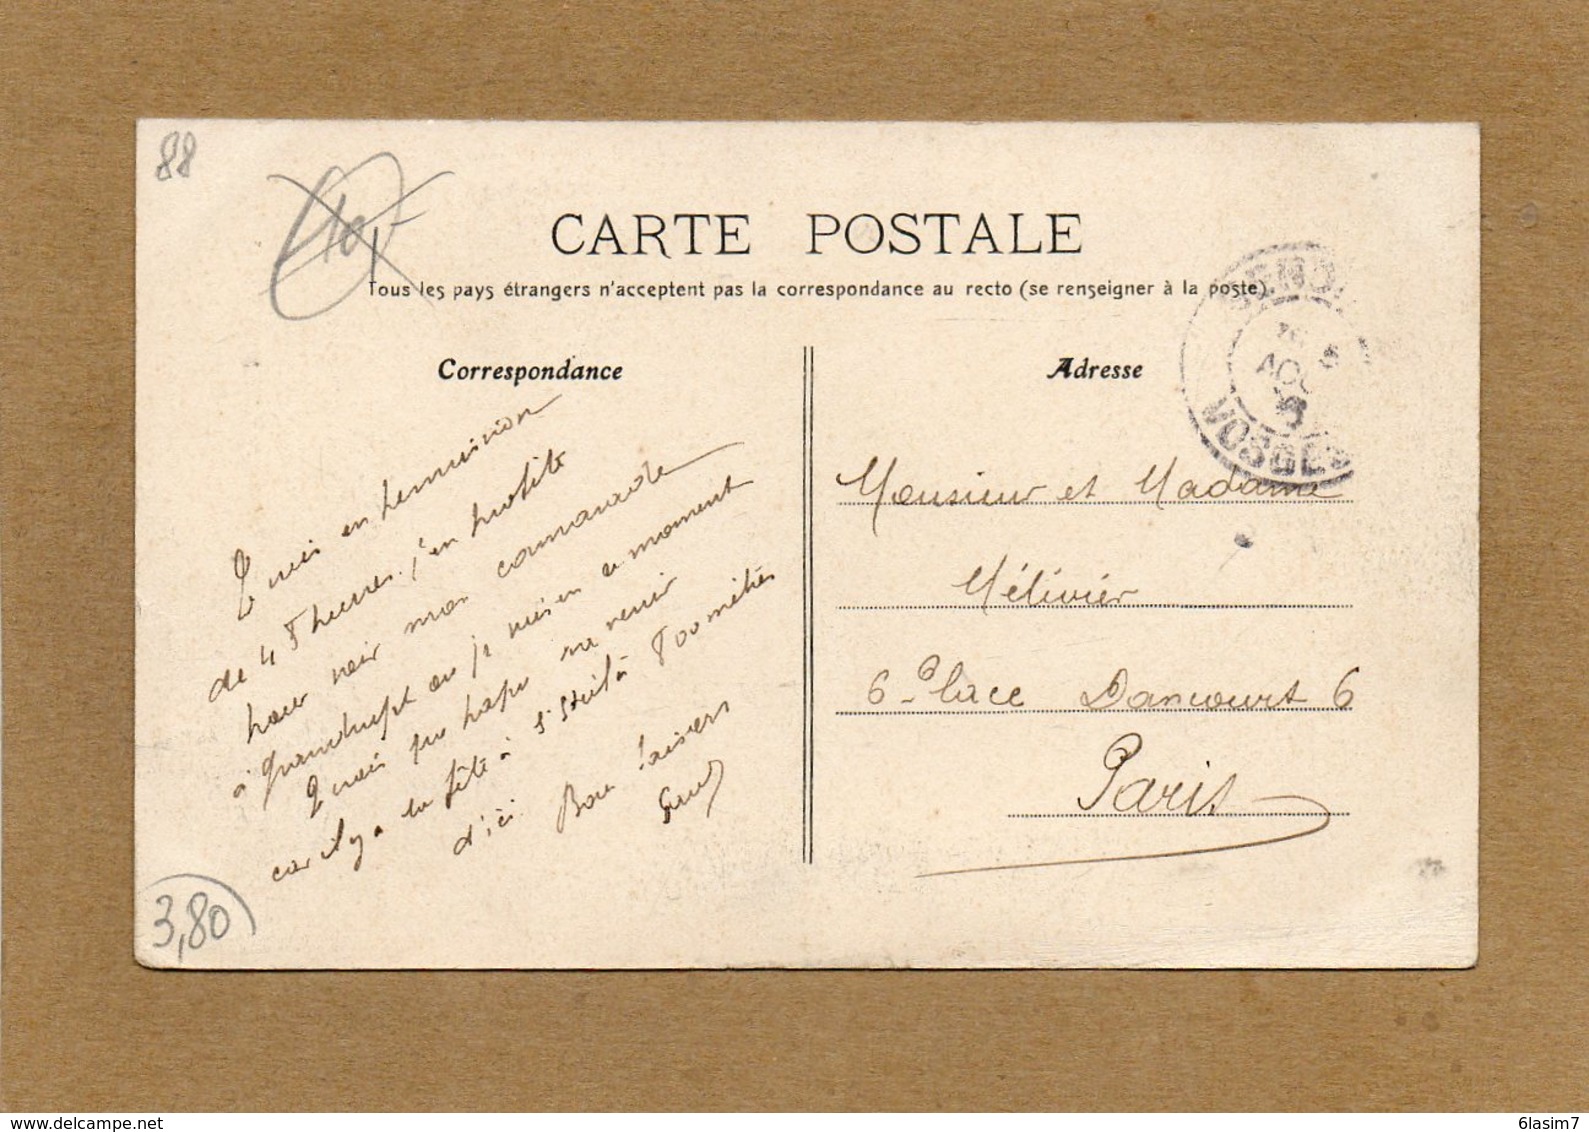 88
CARTE POSTALE
Tous les pays étrangers n'acceptent pas la correspondance au recto (se renseigner à la poste).
Correspondance
Adresse
AOU
VOSGES
Je suis en permission
de 48 heures j'en profite
pour voir mon camarade
à Grandrupt ou je suis en ce moment
Je vais pas revenir
car il y a la fête à à 800 mètres
d'ici. Bons baisers
Monsieur et Madame
Mélivier
6 - Place Dancourt 6
Paris
3,80
www.delcampe.net
6lasim7